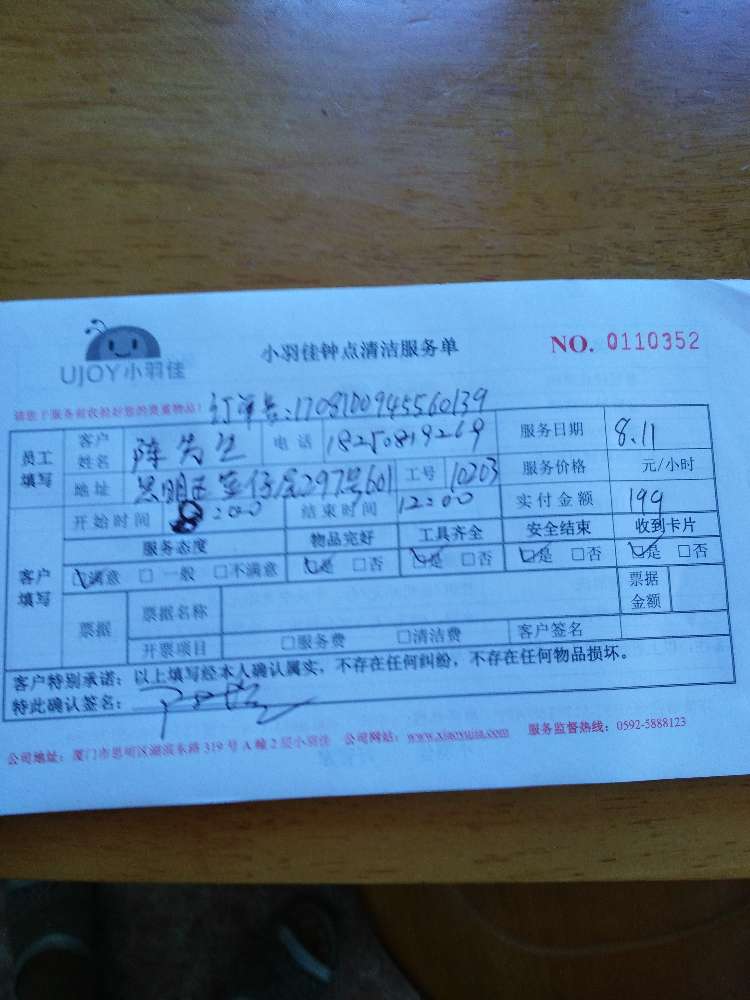 UJOY小羽佳
小羽佳钟点清洁服务单
NO. 0110352
请您于服务前收拾好您的贵重物品!
订单号:1708100945560139
员工填写 客户姓名 陈先生 电话 18250819269 服务日期 8.11
地址 思明区 297号601 工号 10203 服务价格 元/小时
开始时间 :00 结束时间 12:00 实付金额 199
客户填写 服务态度 物品完好 工具齐全 安全结束 收到卡片
满意 □ 一般 □不满意 是 □否 是 □否 是 □否 是 □否
票据 票据名称 票据金额
开票项目 □服务费 □清洁费 客户签名
客户特别承诺:以上填写经本人确认属实,不存在任何纠纷,不存在任何物品损坏。
特此确认签名:
公司地址:厦门市思明区湖滨东路319号A幢2层小羽佳 公司网站:www.xiaoyujia.com 服务监督热线:0592-5888123